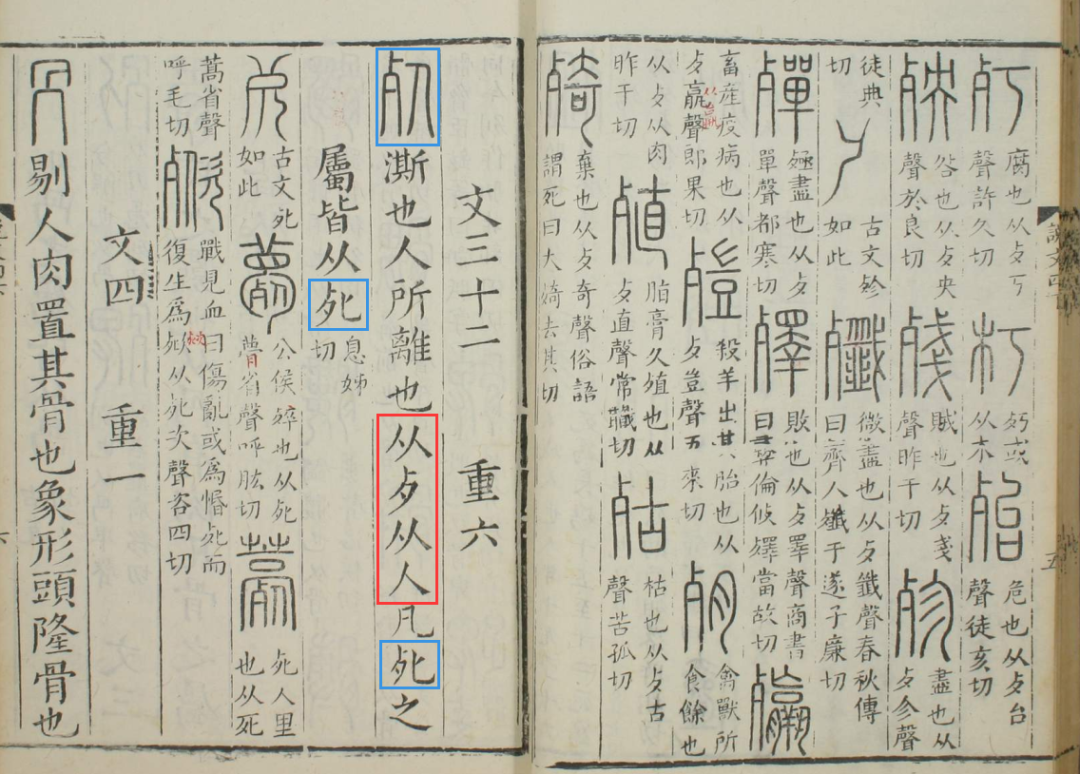 㱙腐也从歺丂聲許久切朽㱙或从木殆危也从歺台聲徒亥切
殃咎也从歺央聲於良切殘賊也从歺戔聲昨干切殄盡也从歺㐱聲
徒典切古文殄如此殲微盡也从歺韱聲春秋傳曰齊人殲于遂子廉切
殫殛盡也从歺單聲都寒切殬敗也从歺睪聲商書曰彝倫攸殬當故切
畜產疫病也从歺聲郎果切殺羊出其胎也从歺豈聲五來切禽獸所食餘也
从歺从肉昨干切殖脂膏久殖也从歺直聲常職切枯也从歺古聲苦孤切
棄也从歺奇聲俗語謂死曰大去其切
文三十二 重六
死澌也人所離也从歺从人凡死之
屬皆从死息姊切
古文死如此薨公侯殌也从死瞢省聲呼肱切薧死人里也从死
蒿省聲呼毛切戰見血曰傷亂或爲惽死而復生爲从死次聲咨四切
文四 重一
冎剔人肉置其骨也象形頭隆骨也